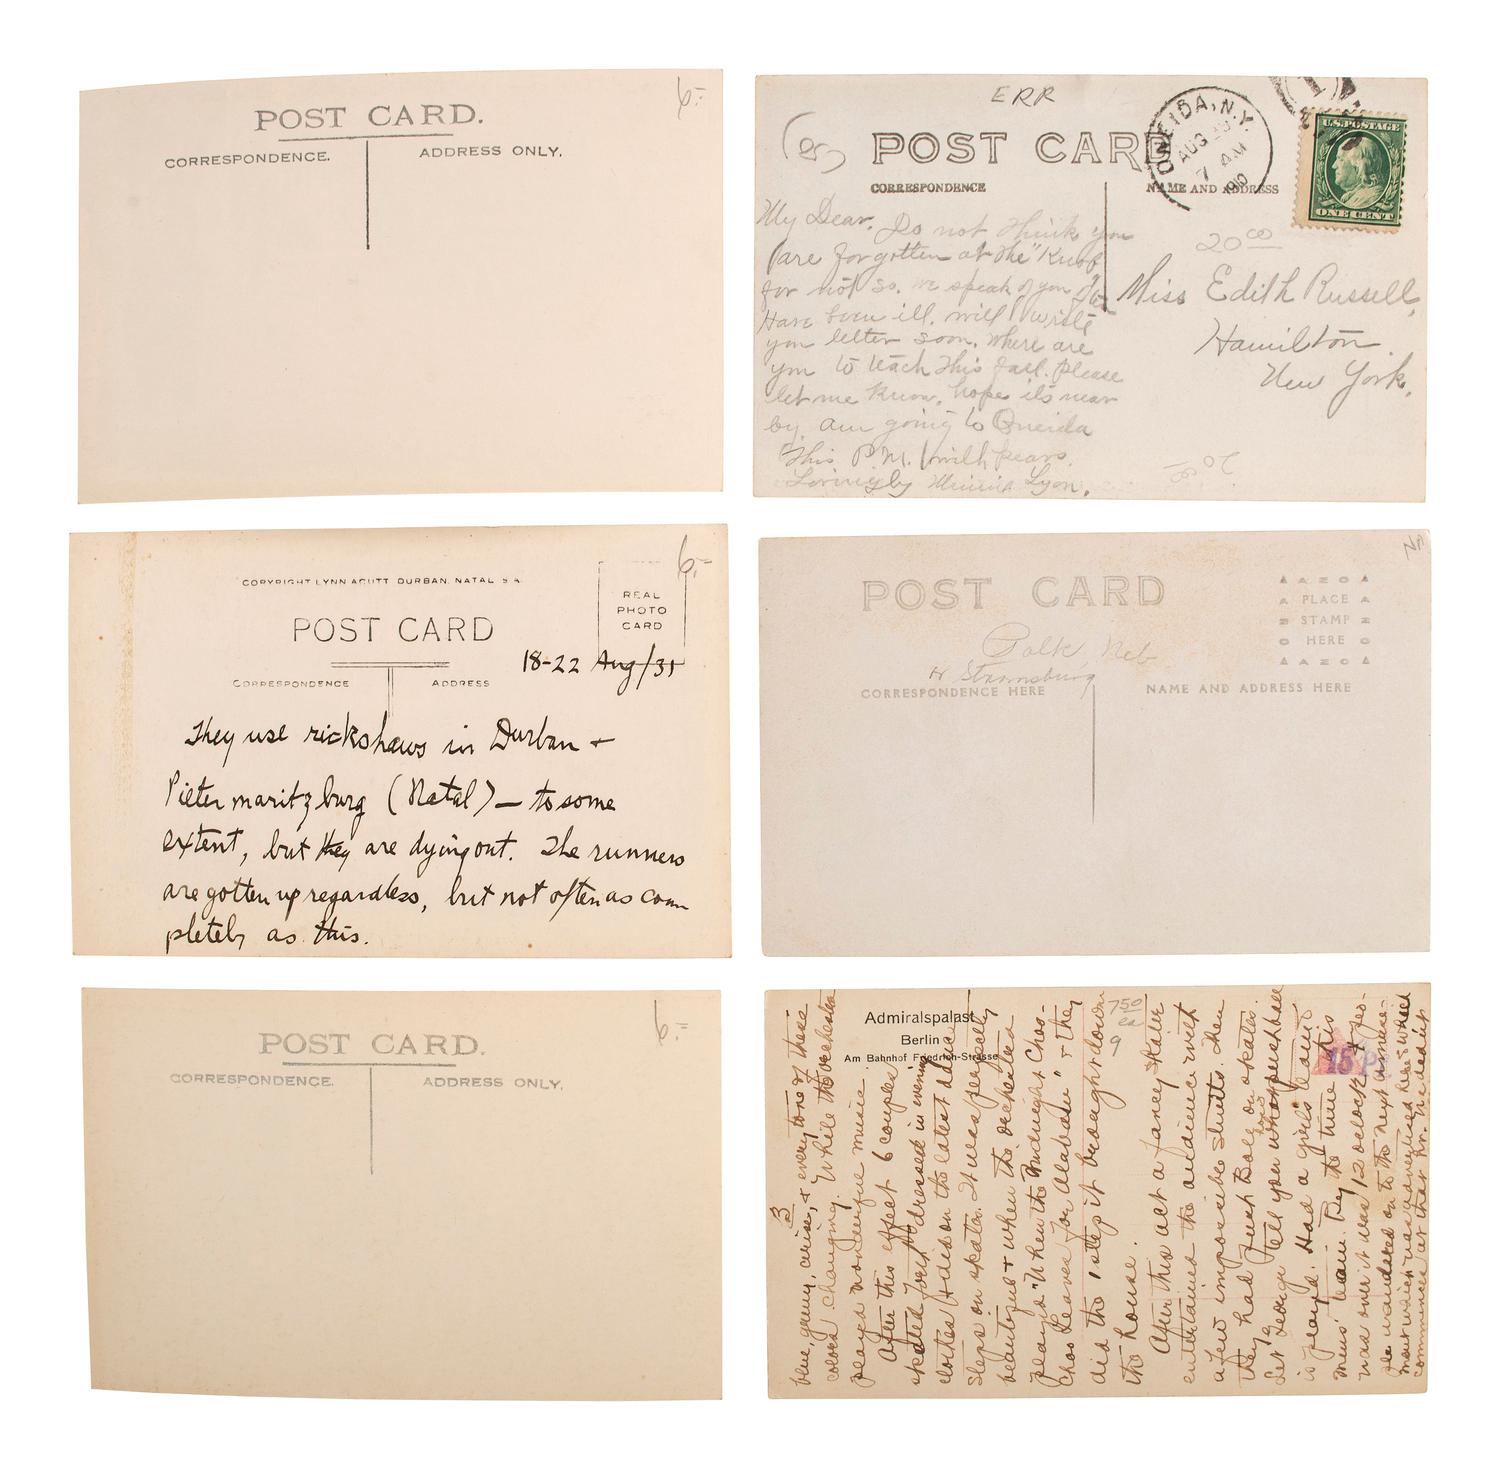 6.-
POST CARD.
CORRESPONDENCE.
ADDRESS ONLY.
ERR
ONEIDA, N.Y.
AUG
7 AM
1910
U.S. POSTAGE
ONE CENT
POST CARD
CORRESPONDENCE
NAME AND ADDRESS
My Dear, Do not think you
are forgotten at the "Knob
for not so. we speak of you
Have been ill. will write
you letter soon. Where are
you to teach This fall. please
let me know. hope its near
by am going to Oneida
This P.M. with pears.
Lovingly Lyon.
20.00
Miss Edith Russell,
Hamilton.
New York.
6.-
COPYRIGHT LYNN ACUTT DURBAN. NATAL S A.
REAL
PHOTO
CARD
POST CARD
18-22 Aug/31
CORRESPONDENCE
ADDRESS
They use rickshaws in Durban +
Pietermaritzburg (Natal) — to some
extent, but they are dying out. The runners
are gotten up regardless, but not often as com
pletely as this.
POST CARD
AZO
PLACE
STAMP
HERE
AZO
Polk, Neb
Stromsburg
CORRESPONDENCE HERE
NAME AND ADDRESS HERE
6.-
POST CARD.
CORRESPONDENCE.
ADDRESS ONLY.
Admiralspalast
Berlin
Am Bahnhof Friedrich-Strasse
7.50
ea
9
15 P
3
blue, green, cerise, + every tone of these
colors changing. While the orchestra
played wonderful music.
After this effect 6 couples
skated forth dressed in evening
clothes + did on the latest dance
steps on skates. It was perfectly
beautiful + when the orchestra
played "When the Midnight Choo-
Choo Leaves for Alabam" + they
did the 1 step it brought down
the house.
After this act a fancy skater
entertained the audience with
a few impossible stunts. Then
they had Push Ball on skates.
Let George tell you how pushball
is played. Had a girls team +
mens' team. By the time this
was over it was 12 oclock + yes-
we wandered on to the next amuse-
ment which was advertised here + which
commences at that hr. Ended up